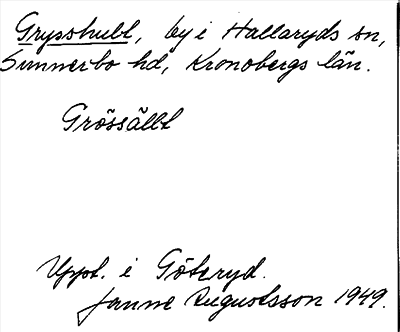 Grysshult, by i Hallaryds sn,
Sunnerbo hd, Kronobergs län.
Grössällt
Uppt. i Göteryd.
Janne Augustsson 1949.